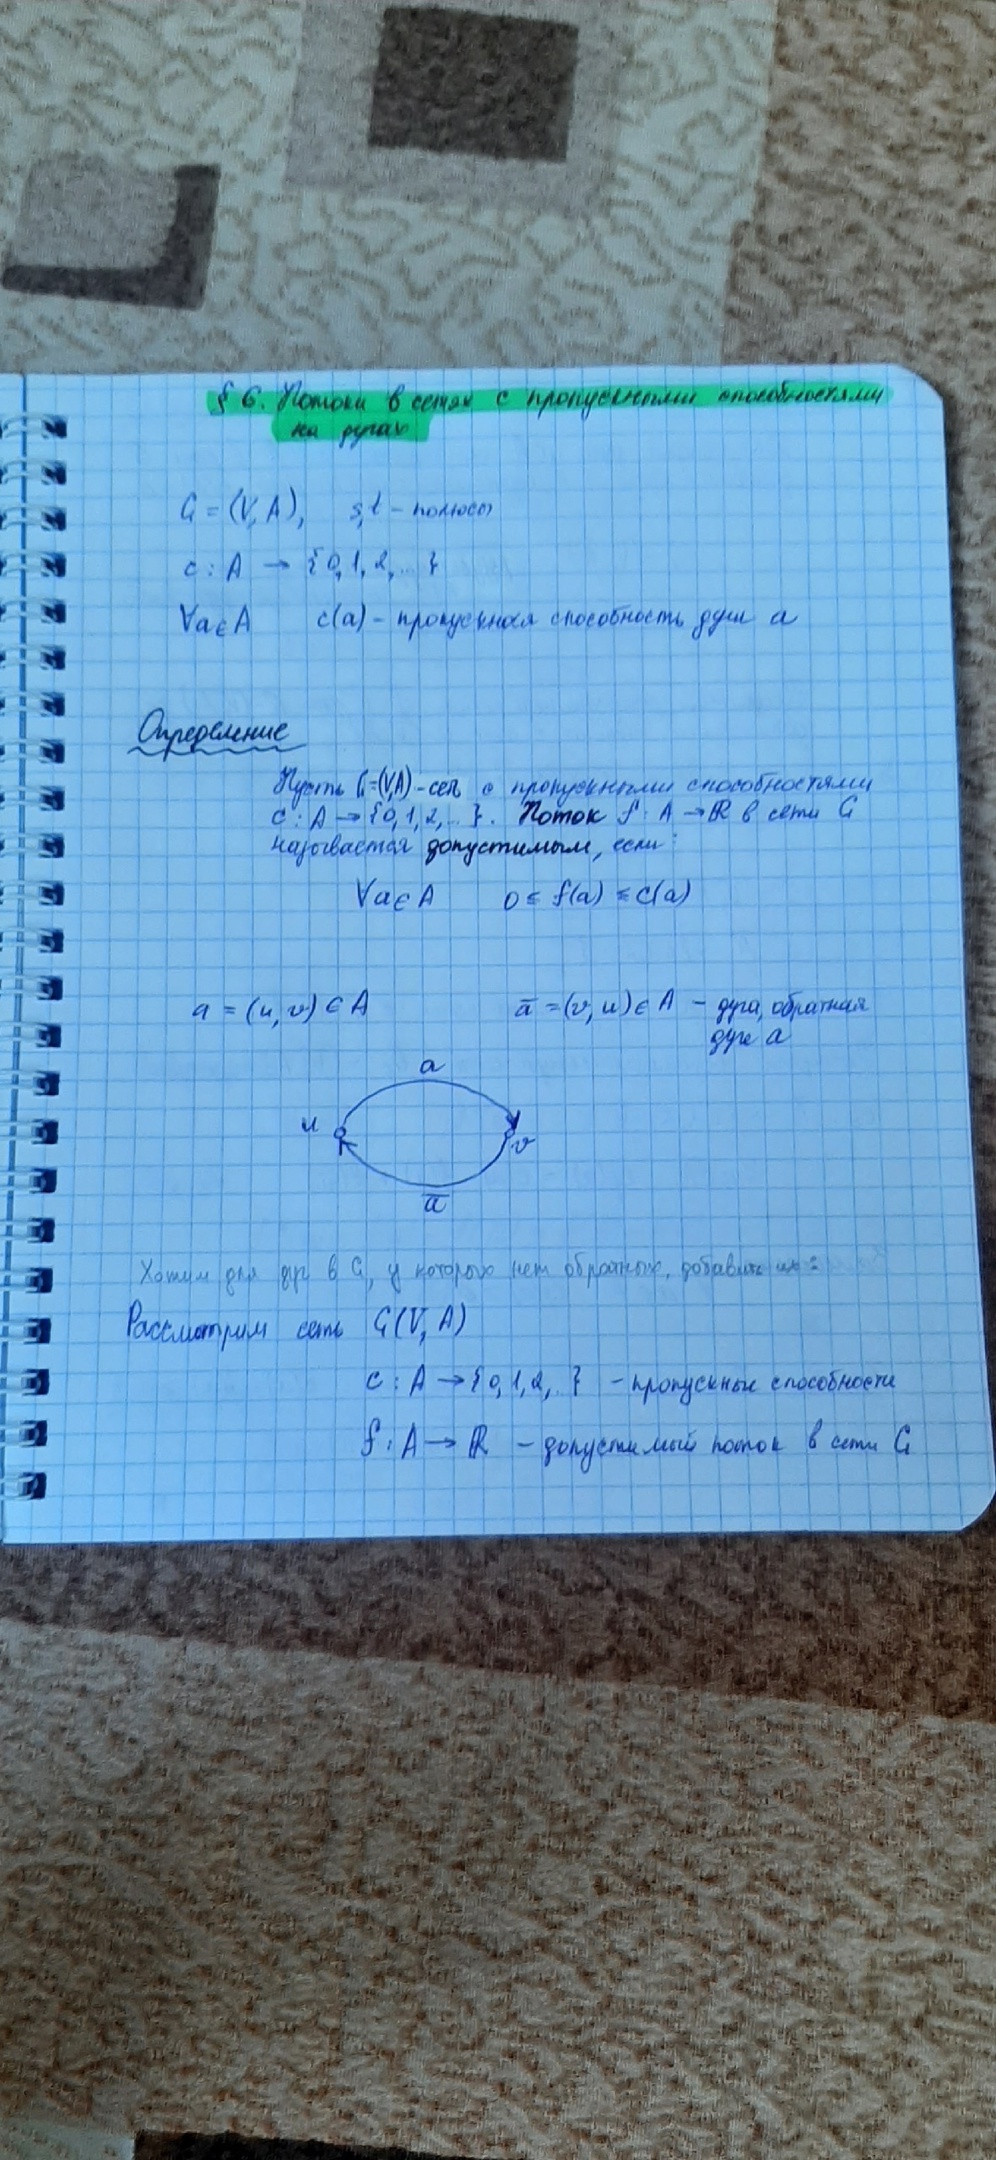 § 6. Потоки в сетях с пропускными способностями
на дугах
G = (V, A), s,t – полюсы
c : A → {0, 1, 2, ... }
∀a∈A c(a) – пропускная способность дуги a
Определение
Пусть G=(V,A) – сеть с пропускными способностями
c : A → {0, 1, 2, ... }. Поток f : A → ℝ в сети G
называется допустимым, если:
∀a∈A 0 ≤ f(a) ≤ c(a)
a = (u, v) ∈ A a̅ = (v, u) ∈ A – дуга, обратная
дуге a
a
u
v
a̅
Хотим для дуг в G, у которых нет обратных, добавить их:
Рассмотрим сеть G(V, A)
c : A → {0, 1, 2, .. } – пропускные способности
f : A → ℝ – допустимый поток в сети G